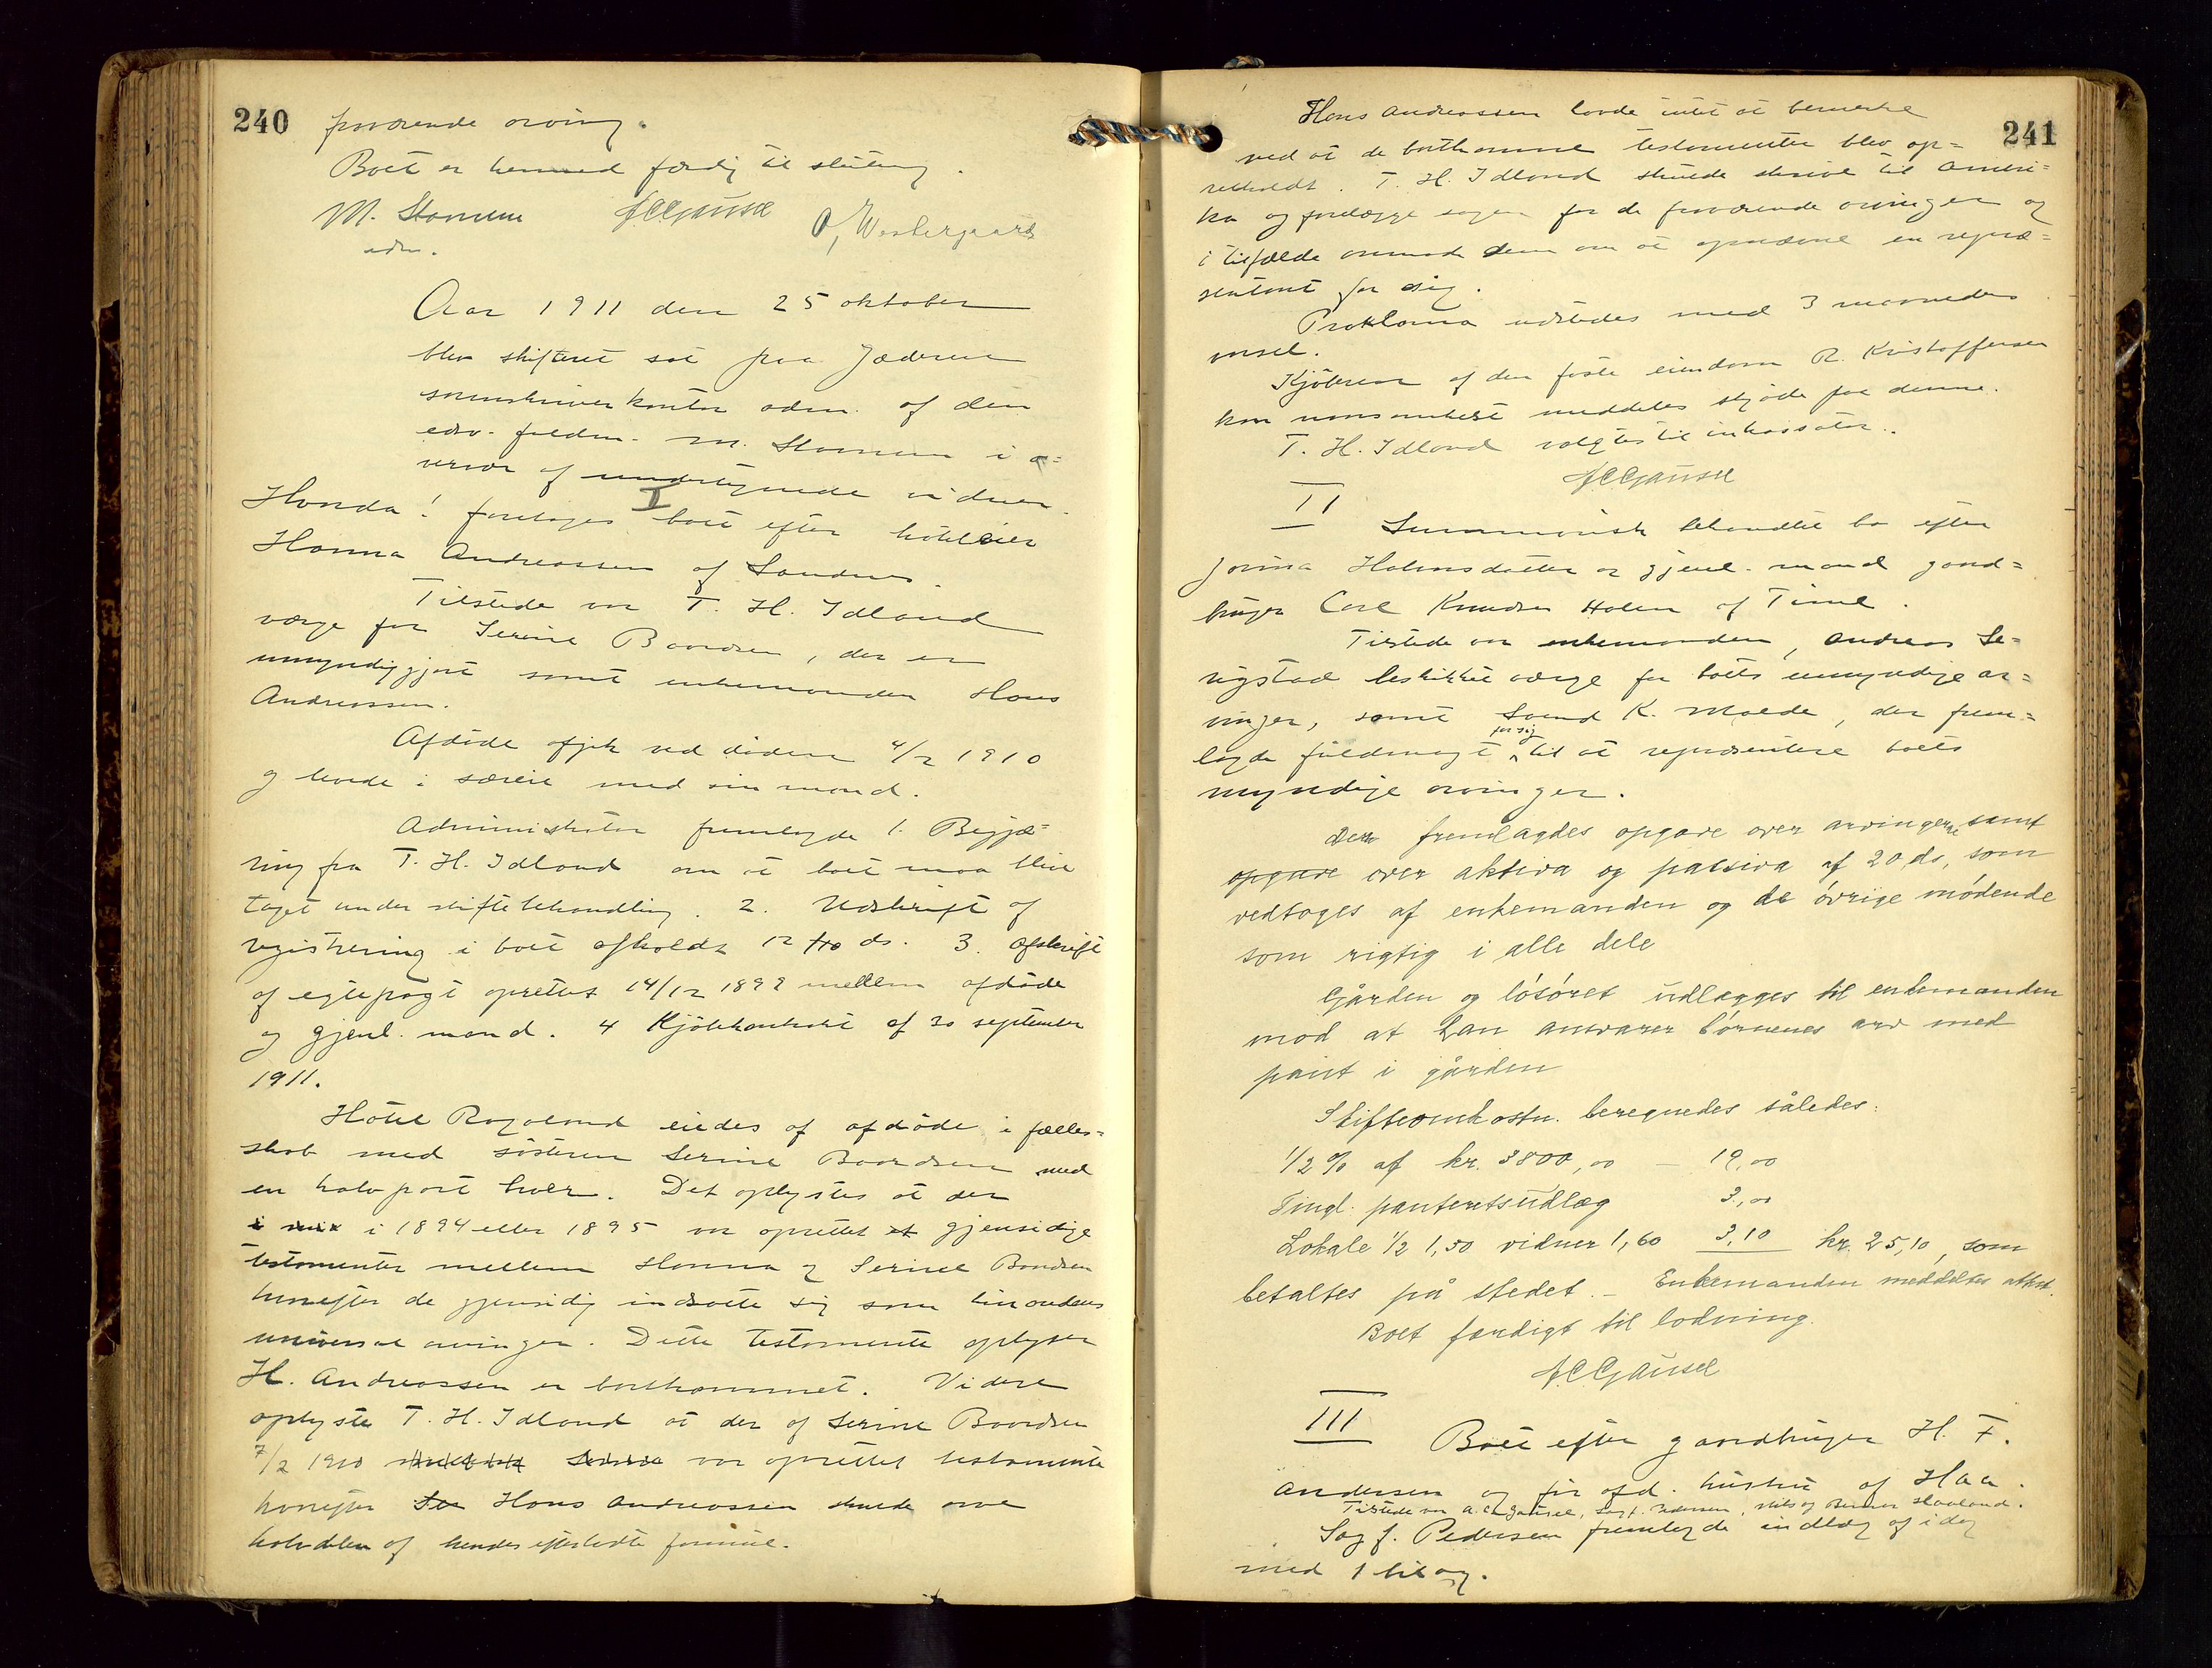 240
fraværende arving.
Boet er hermed færdig til slutning.
M. Stamnes ACGausel O, Westergaard
edsv.
Aar 1911 den 25 oktober
blev skifteret sat paa Jæderens
sorenskriverkontor adm. af den
edsv. fuldm. M. Stamnes i o=
vervær af undertegnede vidner.
Hvorda! foretoges I boet efter hotéleier
Hanna Andreassen af Sandnes.
Tilstede var T. H. Idland
værge for Serine Baardsen, der er
umyndiggjort samt enkemanden Hans
Andreassen.
Afdöde afgik ved döden 4/2 1910
og levede i særeie med sin mand.
Administrator fremlagde 1. Begjæ=
ring fra T. H. Idland om at boet maa blive
taget under skiftebehandling. 2. Udskrift af
registrering i boet afholdt 12 ds. 3. Afskrift
af egtepagt oprettet 14/12 1892 mellem afdöde
og gjenl. mand. 4 Kjöbekontrakt af 30 september
1911.
Hotel Rogaland eiedes af afdöde i fælles=
skab med sösteren Serine Baardsen med
en halv part hver. Det oplystes at der
i 1894 eller 1895 var oprettet et gjensidige
testamenter mellem Hanna og Serine Baardsen
hvorefter de gjensidig indsatte sig som hinandens
universal arvinger. Dette testamente oplyser
H. Andreassen er bortkommet. Videre
oplyste T. H. Idland at der af Serine Baardsen
7/2 1910 var oprettet testamente
hvorefter Hans Andreassen skulde arve
halvdelen af hendes efterladte formue.
241
Hans Andreassen havde intet at bemerke
ved at de bortkomne testamenter blev op=
retholdt. T. H. Idland skulde skrive til Ameri=
ka og forelægge sagen for de fraværende arvinger og
i tilfælde anmode dem om at opnævne en repræ=
sentant for sig.
Proklama udstedes med 3 maaneders
varsel.
Kjöberen af den faste eiendom R. Kristoffersen
kan uanset meddeles skjöde paa denne.
T. H. Idland valgtes til inkassator.
ACGausel
II Summarisk behandlet bo efter
Jorina Halvorsdatter og gjenl. mand gaard=
bruger Carl Knudsen Holen af Time.
Tilstede var enkemanden, Andreas Se=
rigstad beskikket værge for boets umyndige ar=
vinger, samt Svend K. Malde, der frem=
lagde fuldmagt for sig til at repræsentere boets
myndige arvinger.
Der fremlagdes opgave over arvingerne samt
opgave over aktiva og passiva af 20 ds, som
vedtoges af enkemanden og de övrige mödende
som rigtig i alle dele
Gården og lösöret udlægges til enkemanden
mod at han ansvarer börnenes arv med
pant i gården
Skifteomkostn. beregnedes således:
1/2 % af kr. 3800,00 – 19,00
Tingl. panteretsudlæg 3,00
Lokale 1/2 1,50 vidner 1,60 3,10 kr. 25,10, som
betaltes på stedet. – Enkemanden meddeltes attest.
Boet færdigt til lodning.
ACGausel
III
Boet efter gaardbruger H. F.
Andersen og för afd. hustru af Haa.
Tilstede var A. C. Gausel, Sagf. Pedersen, Nils og Berner Haaland.
Sag f. Pedersen fremlagde indlæg af idag
med 1 bilag.